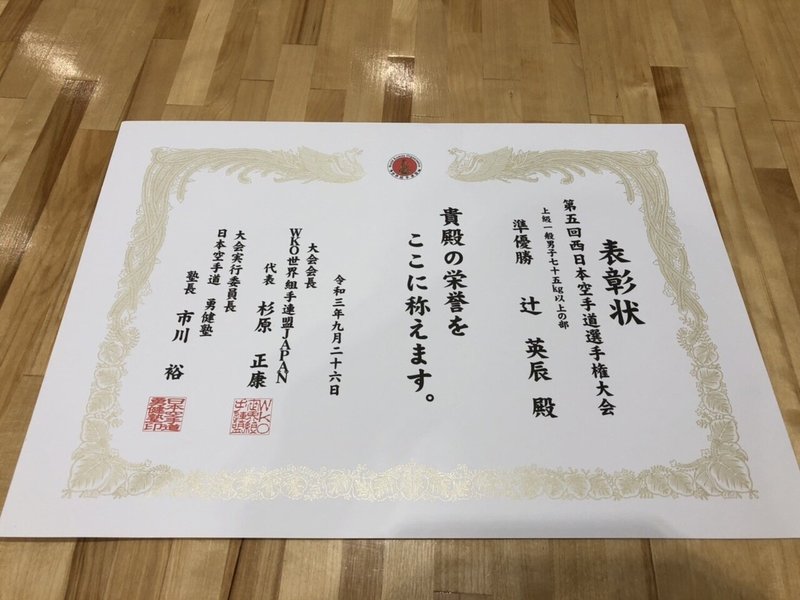 表彰状
第五回西日本空手道選手権大会
上級一般男子七十五kg以上の部
準優勝 辻 英辰 殿
貴殿の栄誉を
ここに称えます。
令和三年九月二十六日
大会会長
WKO世界組手連盟JAPAN
代表 杉原 正康
大会実行委員長
日本空手道 勇健塾
塾長 市川 裕
日本空手道勇健塾印